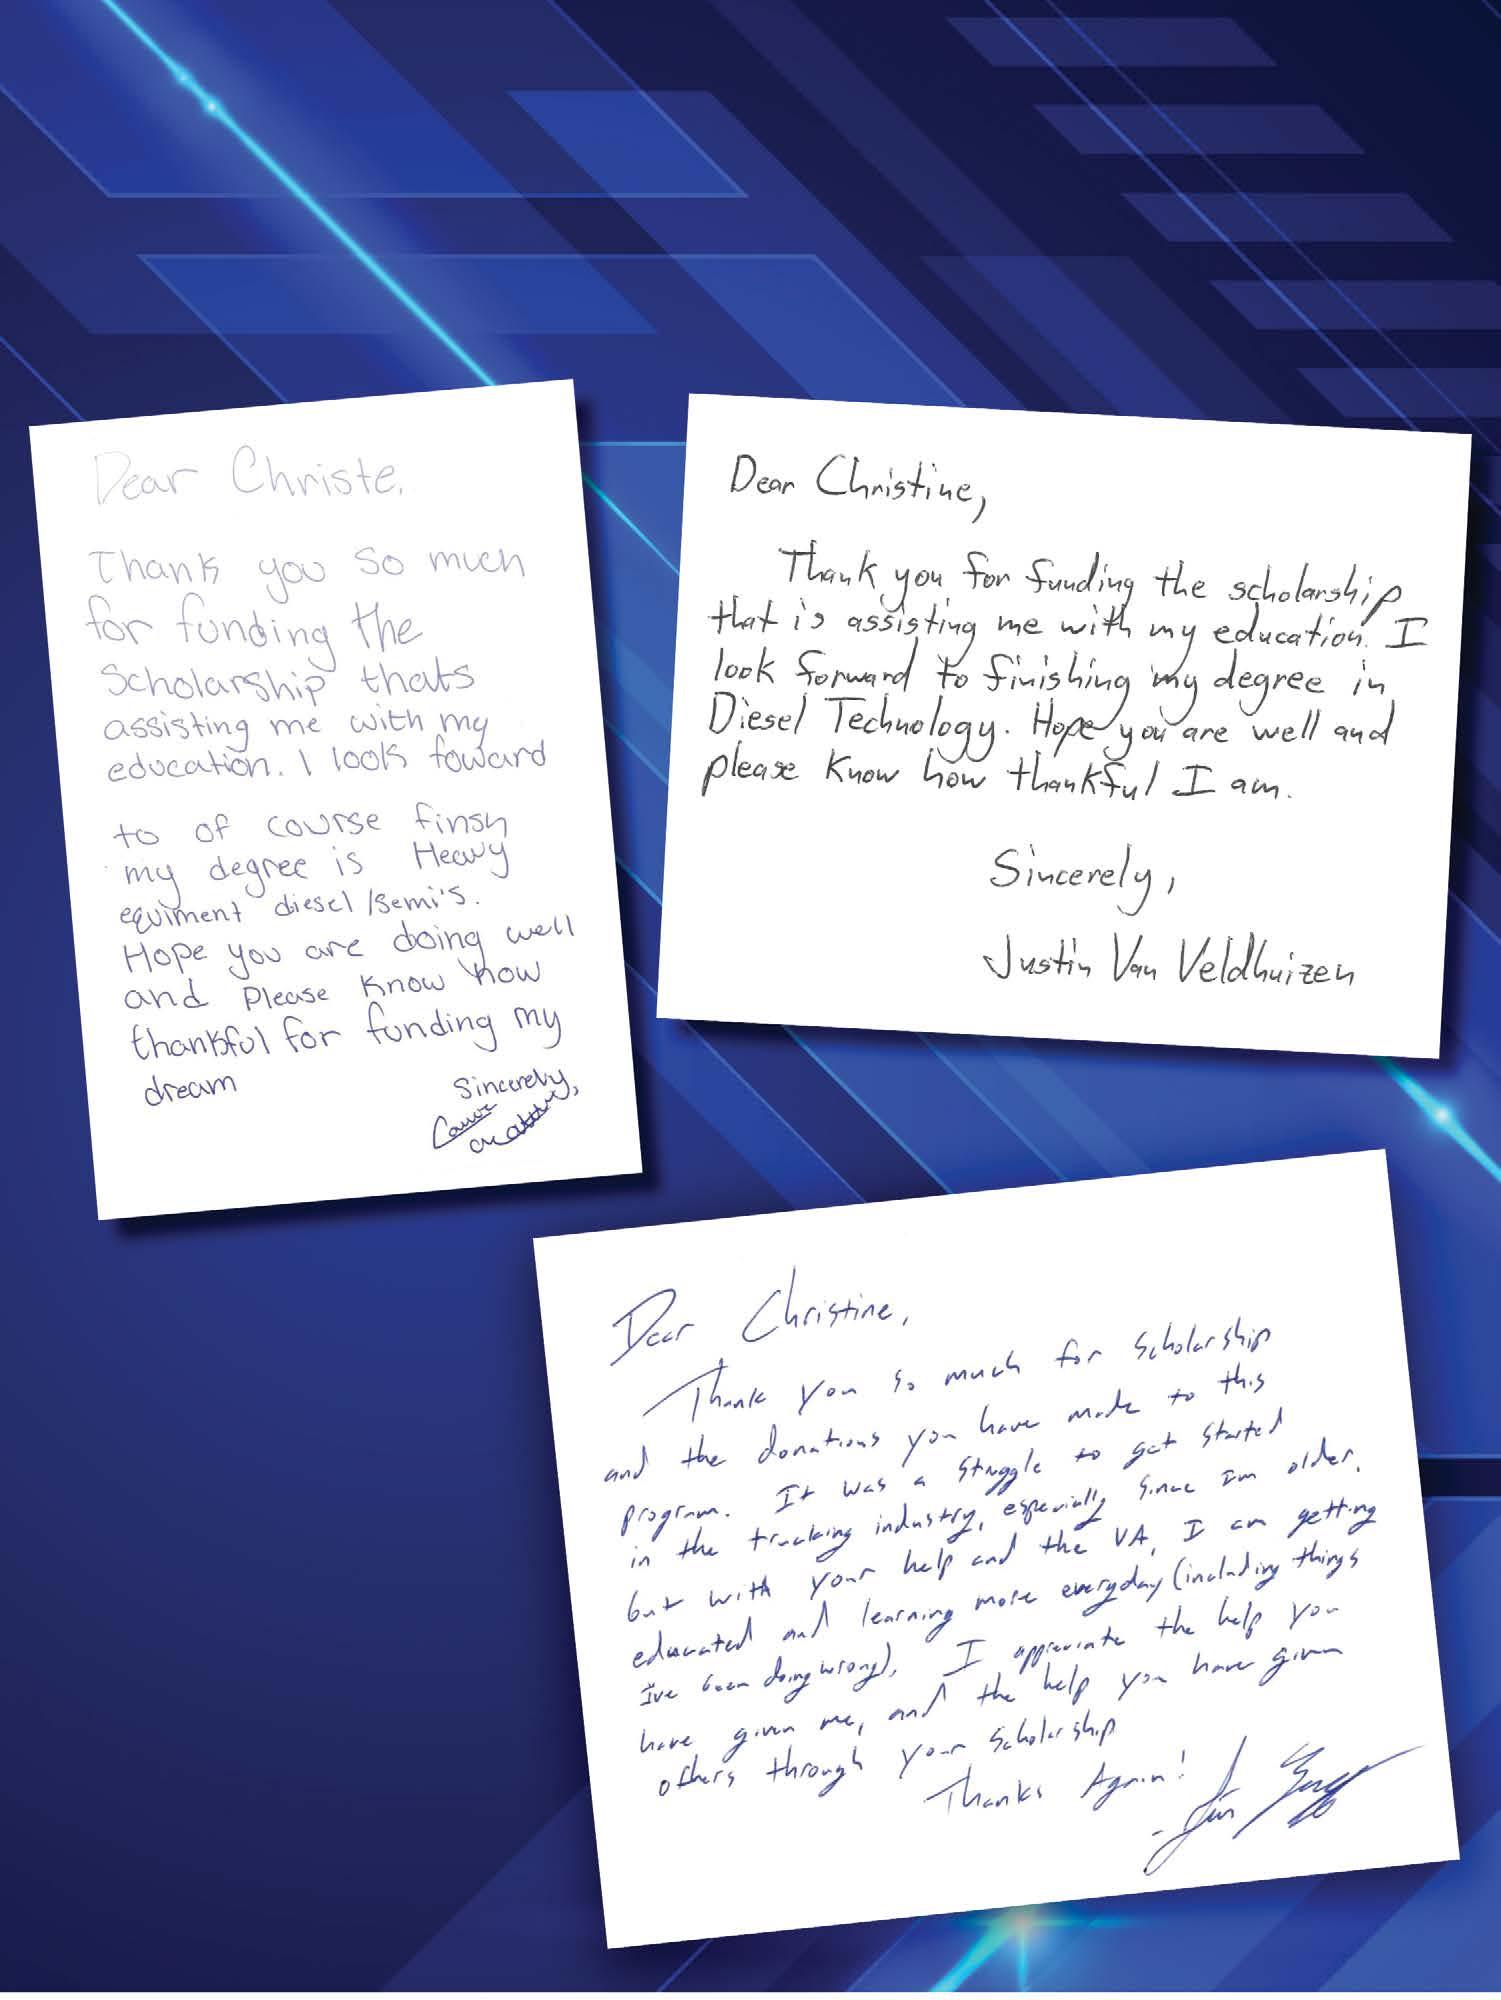 Dear Christe,
Thank you so much
for funding the
Scholarship thats
assisting me with my
education. I look foward
to of course finsh
my degree is Heavy
equiment diesel/semi's.
Hope you are doing well
and Please Know how
thankful for funding my
dream
Sincerely,
Dear Christine,
Thank you for funding the scholarship
that is assisting me with my education. I
look forward to finishing my degree in
Diesel Technology. Hope you are well and
please know how thankful I am.
Sincerely,
Justin Van Veldhuizen
Dear Christine,
Thank you so much for scholarship
and the donations you have made to this
program. It was a struggle to get started
in the trucking industry, especially since Im older,
but with your help and the VA, I am getting
educated and learning more everyday (including things
I've been doing wrong), I appreciate the help you
have given me, and the help you have given
others through your scholarship
Thanks Again!